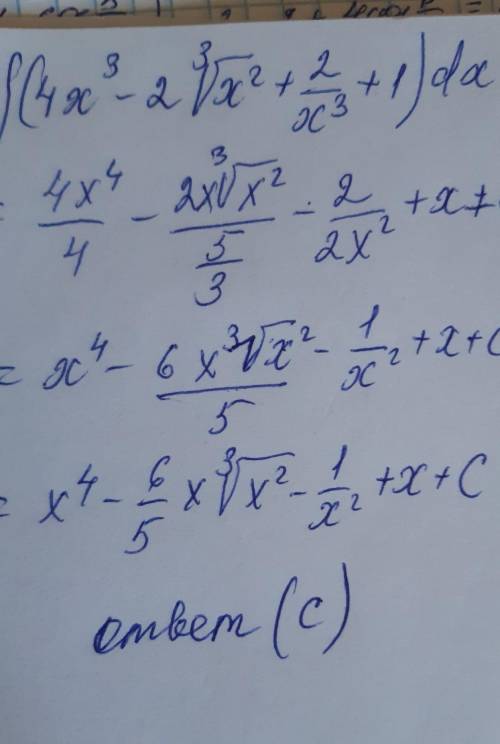 ∫(4x³ - 2∛x² + 2/x³ + 1) dx
= 4x⁴/4 - 2x∛x²/(5/3) - 2/2x² + x +
= x⁴ - 6x∛x²/5 - 1/x² + x + C
= x⁴ - 6/5 x∛x² - 1/x² + x + C
ответ (C)